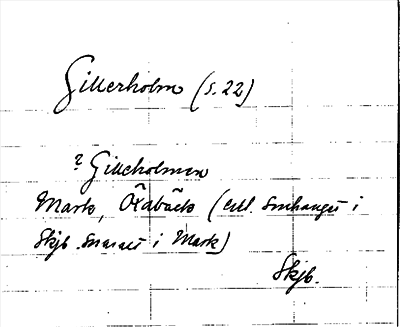 Gillerholm (s. 22)
? Gilleholmen
Mark, Öxabäck (enl. Smhanget i
Skjb. snarast i Mark)
Skjb.